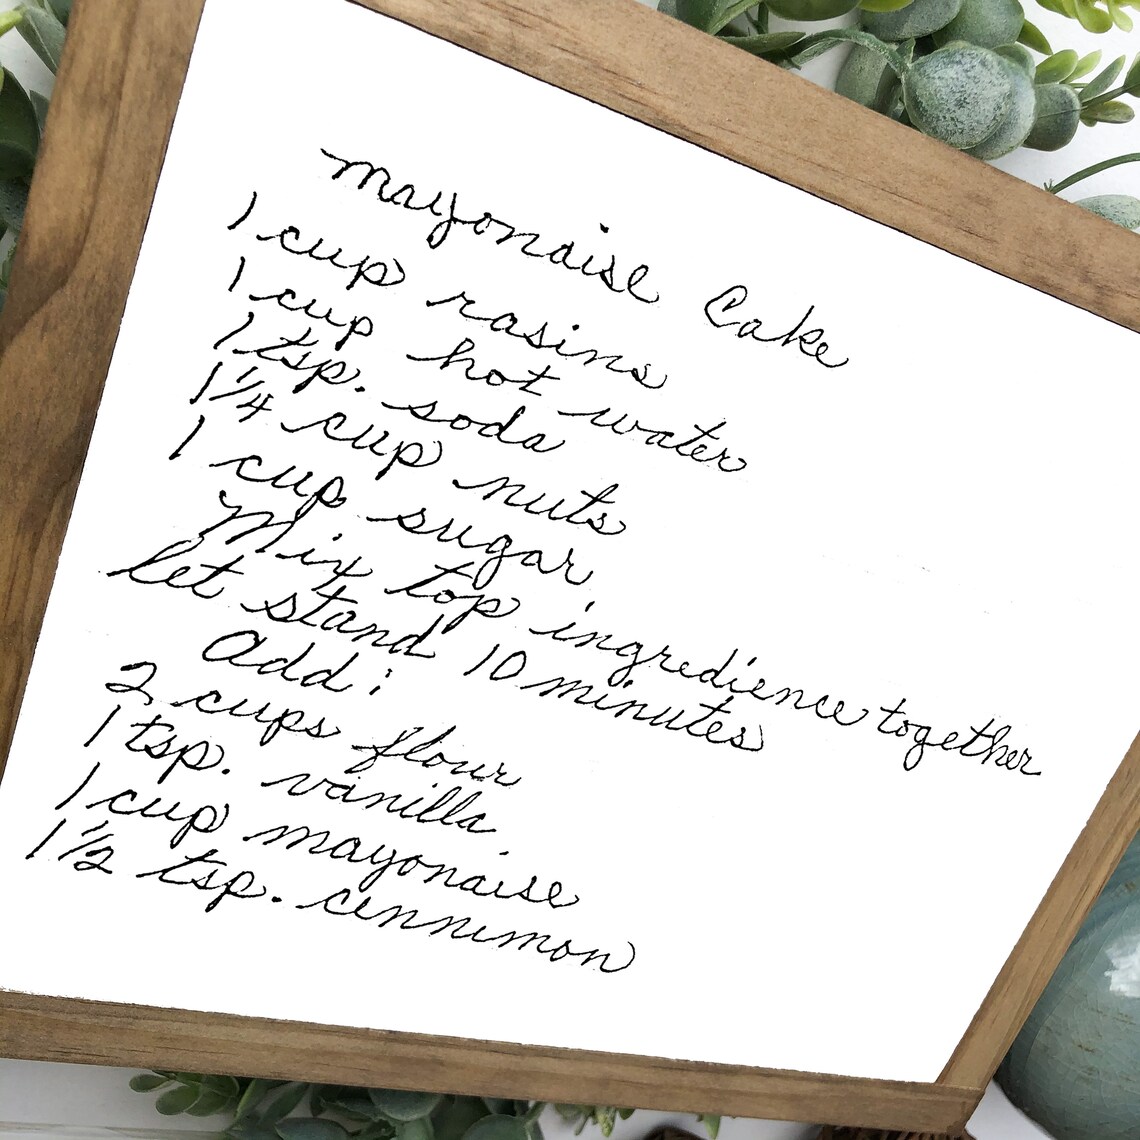 Mayonaise Cake
1 cup rasins
1 cup hot water
1 tsp. soda
1 1/4 cup nuts
1 cup sugar
Mix top ingredience together
let stand 10 minutes
Add:
2 cups flour
1 tsp. vanilla
1 cup mayonaise
1 1/2 tsp. cinnimon